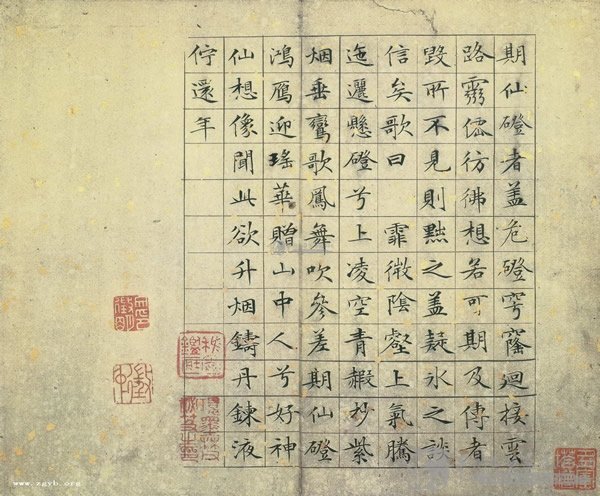 期仙磴者盖危磴穹窿迴接雲
路靈僊彷彿想若可期及傳者
毀所不見則黜之盖疑氷之談
信矣歌曰 霏微陰壑上氣騰
迤邐懸磴兮上凌空青赮杪紫
烟垂鸞歌鳳舞吹參差期仙磴
鴻鴈迎瑤華贈山中人兮好神
仙想像聞此欲升烟鑄丹鍊液
佇還年
www.zgyb.org